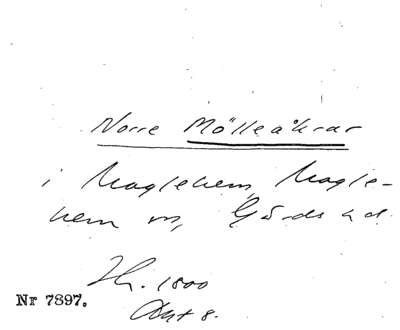 Norre Mölleåkrar
i Maglehem, Magle-
hem sn, Gärds hd.
Sk. 1800
Akt 8.
Nr 7897.